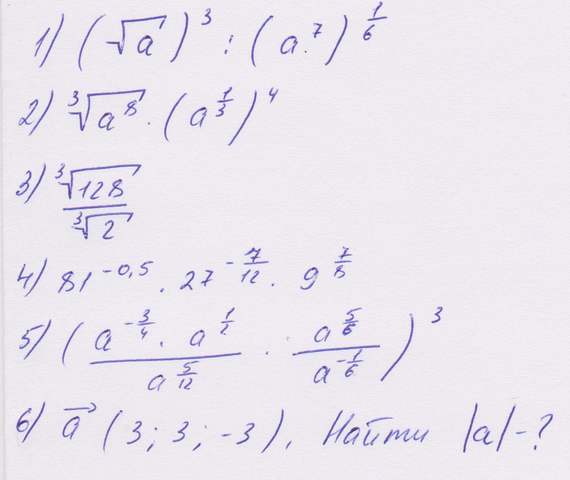 1) (√a)³ : (a⁷)^(1/6)
2) ∛(a⁸) · (a^(1/3))⁴
3) ∛128 / ∛2
4) 81^(-0,5) · 27^(-7/12) · 9^(7/8)
5) ((a^(-3/4) · a^(1/2)) / a^(5/12) · a^(5/6) / a^(-1/6))³
6) a⃗ (3; 3; -3). Найти |a| - ?